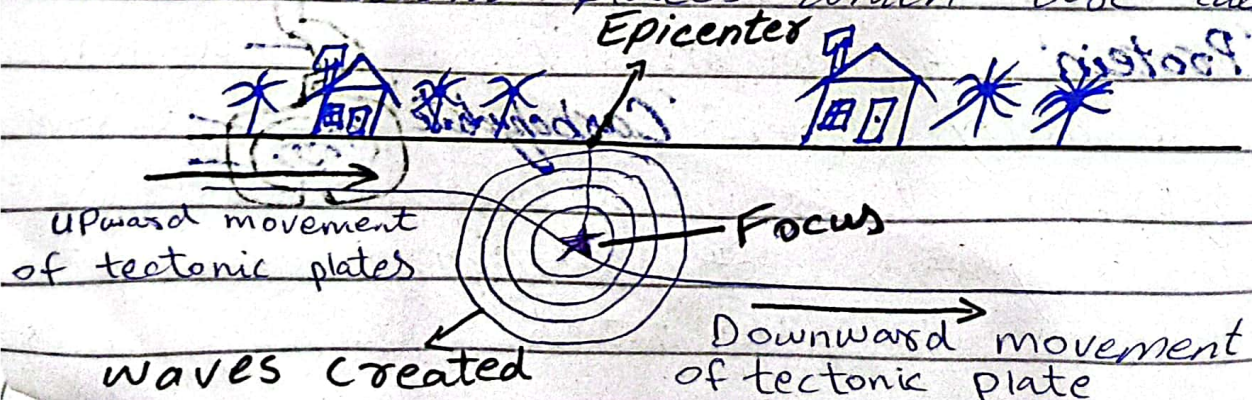 Epicenter
upward movement
of tectonic plates
Focus
waves created
Downward movement
of tectonic plate